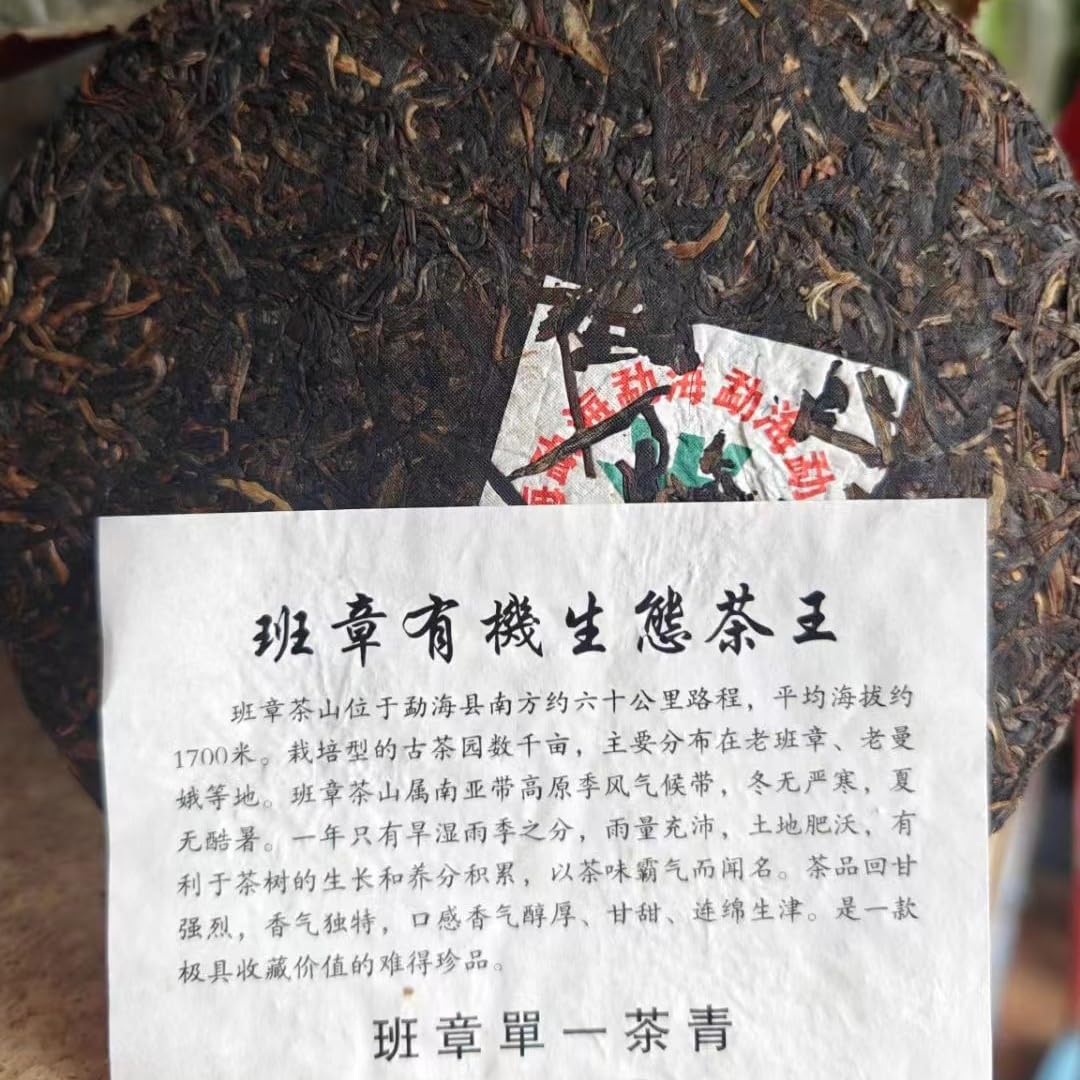 勐海勐海勐
班章有機生態茶王
班章茶山位于勐海县南方约六十公里路程，平均海拔约
1700米。栽培型的古茶园数千亩，主要分布在老班章、老曼
娥等地。班章茶山属南亚带高原季风气候带，冬无严寒，夏
无酷暑。一年只有旱湿雨季之分，雨量充沛，土地肥沃，有
利于茶树的生长和养分积累，以茶味霸气而闻名。茶品回甘
强烈，香气独特，口感香气醇厚、甘甜、连绵生津。是一款
极具收藏价值的难得珍品。
班章單一茶青